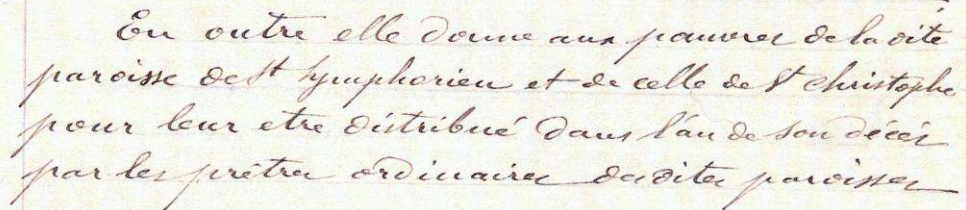 En outre elle donne aux pauvres de la dite
paroisse de St Symphorien et de celle de St Christophe
pour leur etre distribué dans l'an de son décés
par les prêtres ordinaires desdites paroisses